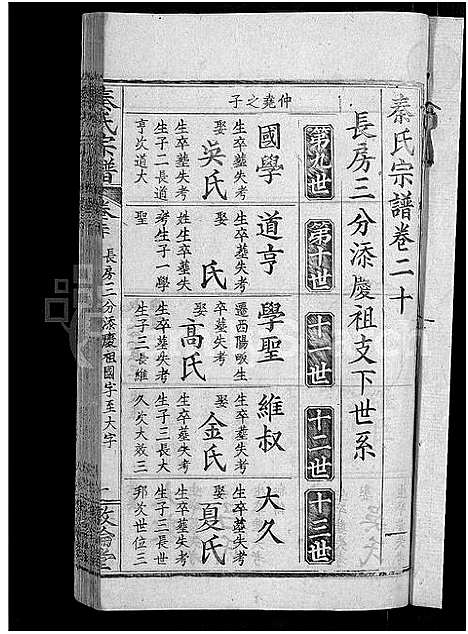 秦氏宗譜卷二十
長房三分添慶祖支下世系
第九世
第十世
十一世
十二世
十三世
仲堯之子
國學
生卒塟失考
娶
吳氏
生卒塟失考
生子二長道
亨次道大
道亨
生卒塟失考
娶
氏
姓生卒塟失
考生子一學
聖
學聖
遷西陽畈生
卒塟失考
娶
高氏
生卒塟失考
生子三長維
維叔
生卒塟失考
娶
金氏
生卒塟失考
生子三長大
久次大效三
大久
生卒塟失考
娶
夏氏
生卒塟失考
生子三長世
邦次世位三
秦氏宗譜
卷二十
長房三分添慶祖國字至大字
一
敦倫堂